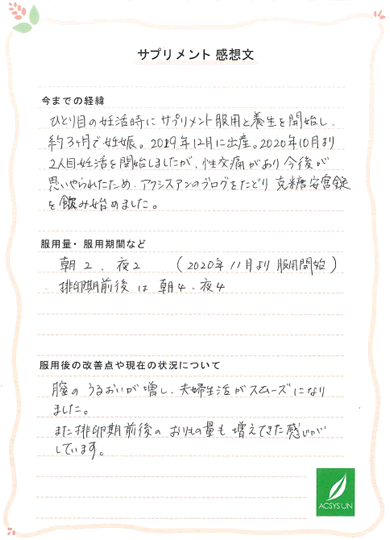 サプリメント 感想文
今までの経緯
ひとり目の妊活時に サプリメント服用と養生を開始し、
約3ヶ月で妊娠。2019年12月に出産。2020年10月より
2人目妊活を開始しましたが、性交痛があり今後が
思いやられたため、アクシスアンのブログをたどり 克糖安宮錠
を飲み始めました。
服用量・服用期間など
朝2、夜2 (2020年11月より服用開始)
・排卵期前後 は 朝4・夜4
服用後の改善点や現在の状況について
膣の うるおいが増し、夫婦生活がスムーズになり
ました。
また排卵期前後の おりもの量も 増えてきた感じが
しています。
ACSYS UN